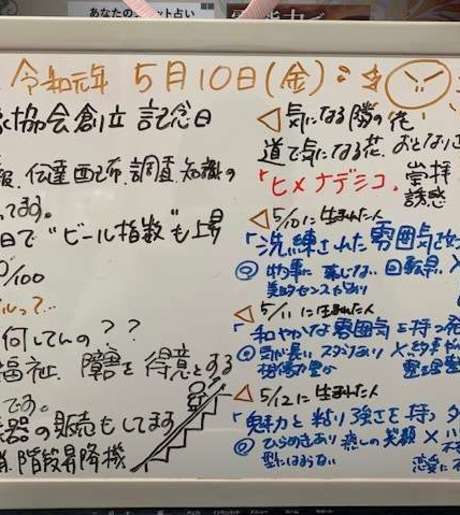 あなたの
ット占い
令和元年 5月10日(金)
協会創立 記念日
報、伝達 配布、調査、知識の
ってます。
日で "ビール指数"も上昇
0/100
ルって...
何してんの??
福祉、障害を得意とする
です。
器の販売もしてます
階段昇降機
◁ 気になる隣の花
道で気になる花、おとなりさ
「ヒメナデシコ。 崇拝
誘惑
◁ 5/10に生まれた人
「洗練された雰囲気を
◎ 物事に 動じない 回転早
美的センスあり
◁ 5/11に生まれた人
「和やかな雰囲気を持つ発
◎ 気が長い スタミナあり ×
想像力豊か
◁ 5/12に生まれた人
「魅力と粘り強さを持つタ
◎ ひらめきあり 癒しの笑顔 ×
型にはまらない
恋愛に